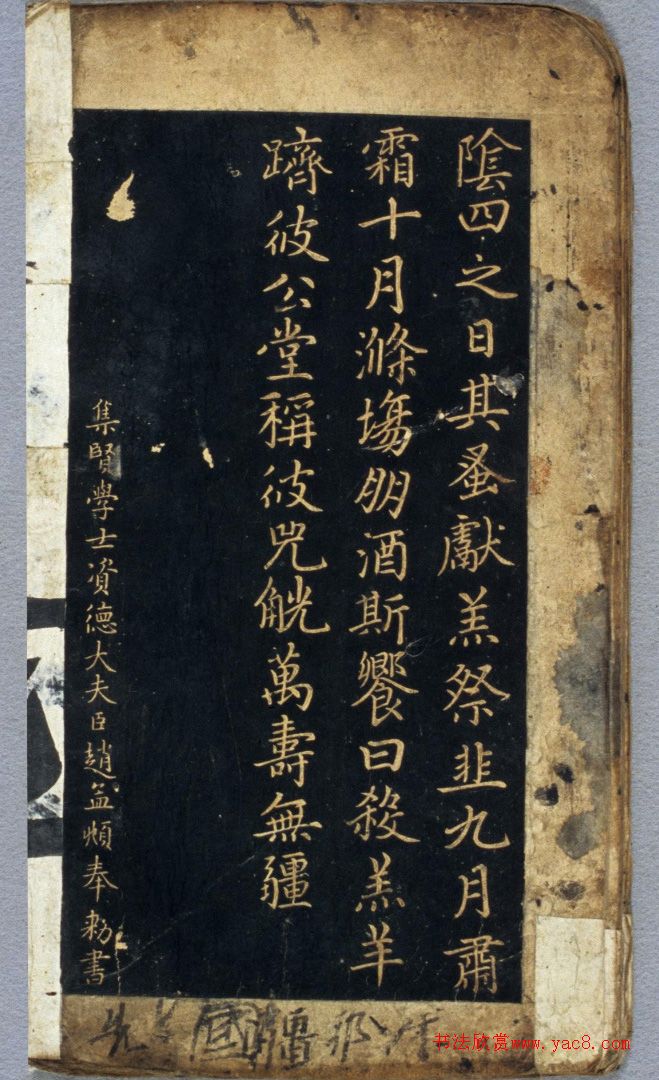 陰四之日其蚤獻羔祭韭九月肅
霜十月滌塲朋酒斯饗曰殺羔羊
躋彼公堂稱彼兕觥萬壽無疆
集賢學士資德大夫臣趙孟頫奉勑書
書法欣赏www.yac8.com